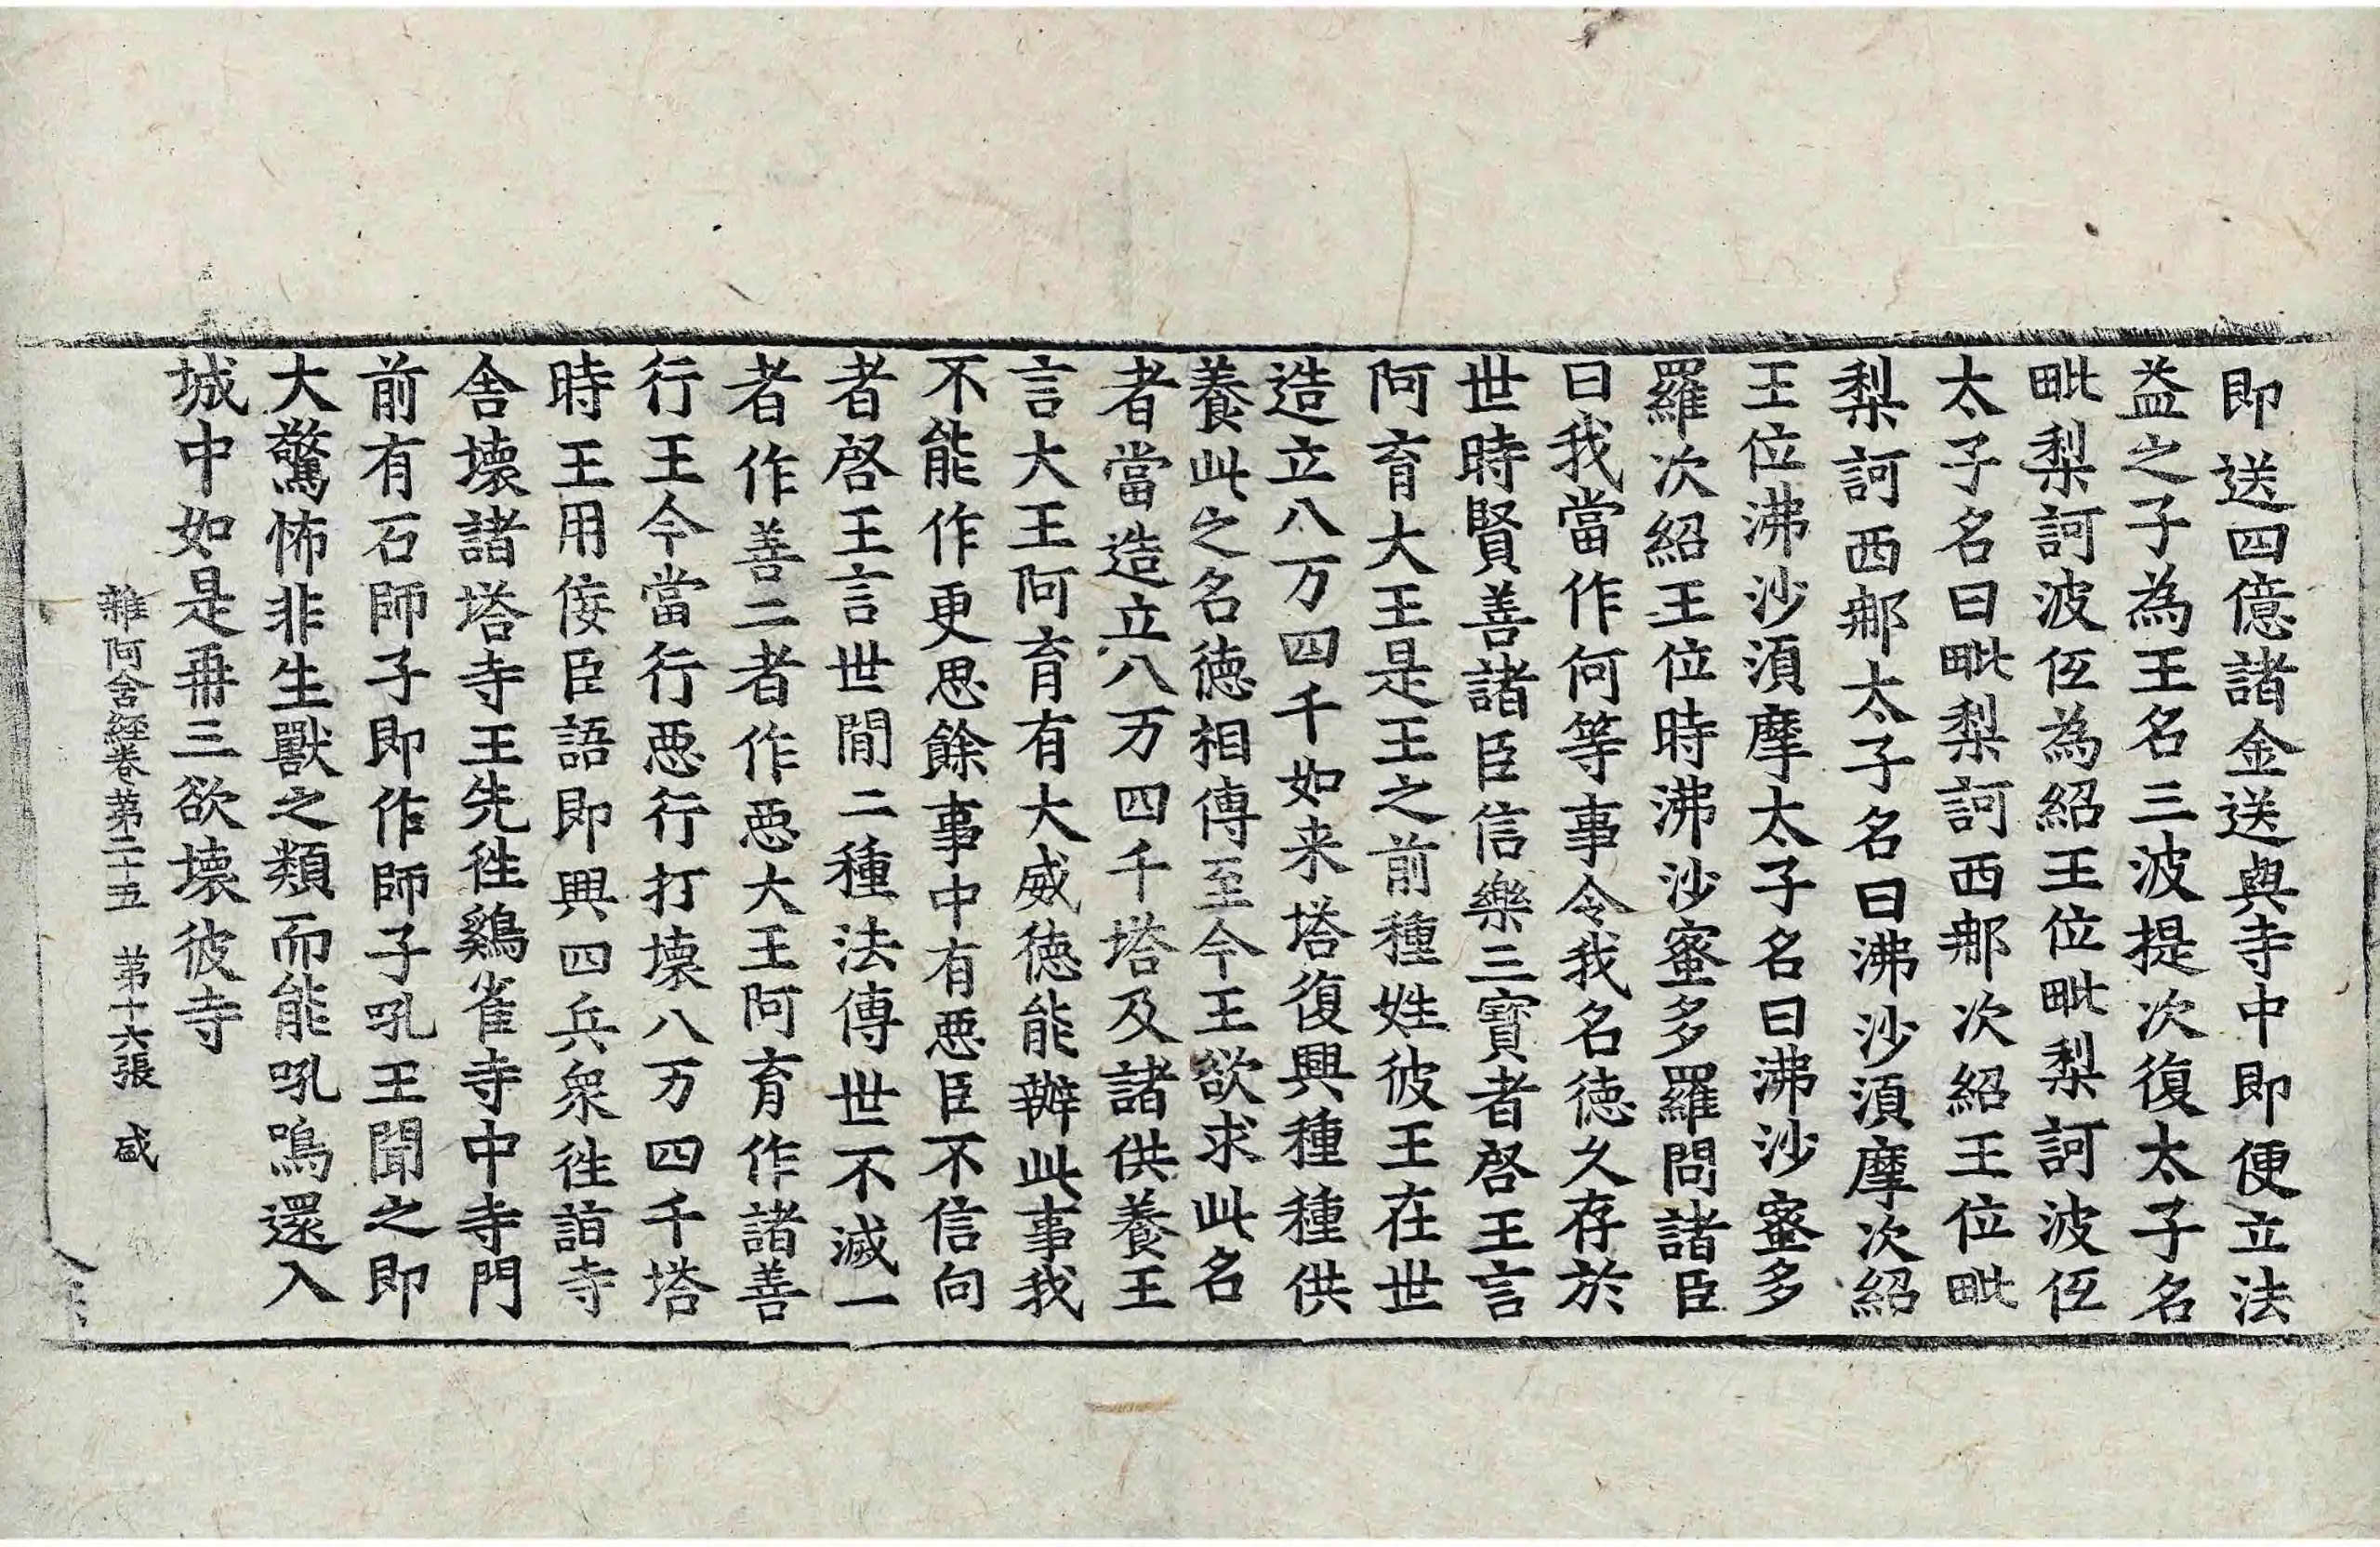 即送四億諸金送與寺中即便立法
益之子為王名三波提次復太子名
毗梨訶波伍為紹王位毗梨訶波伍
太子名曰毗梨訶西那次紹王位毗
梨訶西那太子名曰沸沙須摩次紹
王位沸沙須摩太子名曰沸沙蜜多
羅次紹王位時沸沙蜜多羅問諸臣
曰我當作何等事令我名德久存於
世時賢善諸臣信樂三寶者啓王言
阿育大王是王之前種姓彼王在世
造立八万四千如来塔復興種種供
養此之名德相傳至今王欲求此名
者當造立八万四千塔及諸供養王
言大王阿育有大威德能辦此事我
不能作更思餘事中有惡臣不信向
者啓王言世間二種法傳世不滅一
者作善二者作惡大王阿育作諸善
行王今當行惡行打壞八万四千塔
時王用佞臣語即興四兵衆徃詣寺
舍壞諸塔寺王先徃鷄雀寺中寺門
前有石師子即作師子吼王聞之即
大驚怖非生獸之類而能吼鳴還入
城中如是再三欲壞彼寺
雜阿含經卷第二十五　第十六張　咸